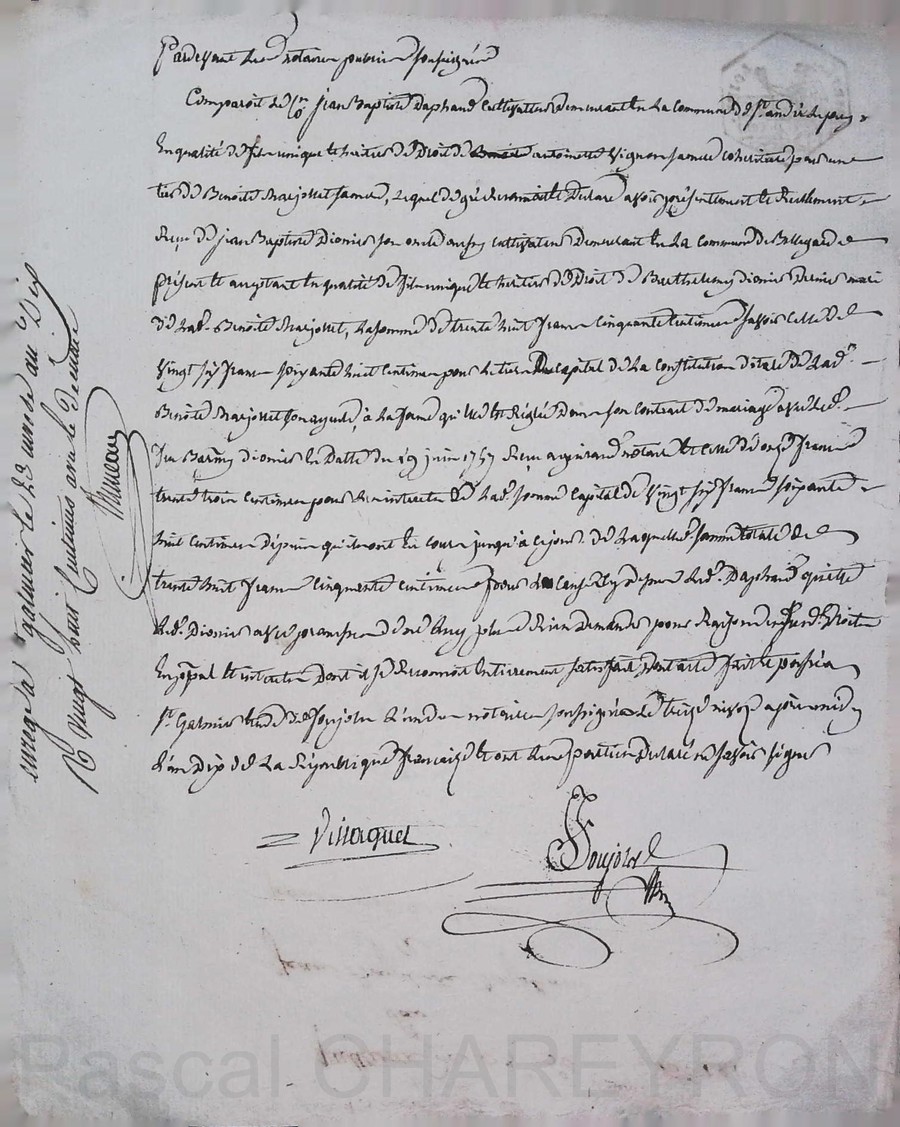 Pardevant les notaires publics soussignés
Comparoit le Cn Jean Baptiste Daphaud cultivateur demeurant en la commune de St andré le puy
En qualité de fils unique et heritier de Droit de antoinette Vignon femme coheritiere pour une
tier de Benoite Marjollet femme, lequel de gré Reconnait et Declare avoir présentement et Reellement
Reçu de jean Baptiste Dionis son oncle aussy cultivateur demeurant en la commune de Bellegarde
présent et acceptant en qualité de fils unique et heritier de Droit de Barthelemy dionis dernier mari
de lad. Benoite Marjollet, la somme de trente huit francs cinquante centimes savoir celle de
Vingt six francs soixante huit centimes pour le tiers Du capital de la Constitution dotale de lad.
Benoite Marjollet son ayeule, à la forme qu'elle est Réglée Dans son contrat de mariage avec led.
feu Barmy dionis en Datte du 19 juin 1757 Reçu notaire et celle de onze francs
trente trois centimes pour les interets de lad. somme capitale de Vingt six francs soixante
huit centimes depuis qu'ils ont eu cours jusqu'à ce jour. De laquelle somme totale de
trente huit francs cinquante centimes pour les causes cy dessus led. Daphaud quitte
led. Dionis avec promesse de ne luy plus Rien Demander pour Raison de sesd. Droits
En p̃pal et interets Dont il se Reconnoit entierement satisfait Dont acte fait et passé à
St. Galmier etude de Soujols l'un des notaires soussignés le treize nivose après midy
l'an Dix de la République française et ont les parties Declaré ne savoir signer
Vissaguet
Soujols
Nre
enregé à Galmier le 23 nivose an Dix
R. Vingt sept Centimes avec le Decime
Pascal CHAREYRON